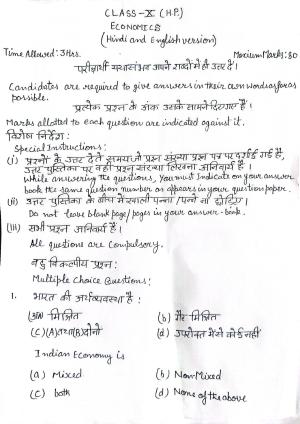 CLASS-X (H.P.)
ECONOMICS
(Hindi and English version)
Time Allowed: 3Hrs.
Maxium Marks: 80
परीक्षार्थी यथासंभव अपने शब्दों में ही उत्तर दें।
Candidates are required to give answers in their own words as far as
possible.
प्रत्येक प्रश्न के अंक उसके सामने दिए गए हैं।
Marks allotted to each question are indicated against it.
विशेष निर्देश:
Special Instructions:
(i) प्रश्नों के उत्तर देते समय जो प्रश्न संख्या प्रश्न पत्र पर दर्शाई गई है,
उत्तर पुस्तिका पर वही प्रश्न संख्या लिखना अनिवार्य है।
While answering the questions, You must Indicate on your answer
book the same question number as appears in your question paper.
(ii) उत्तर पुस्तिका के बीच में खाली पन्ना / पन्ने ना छोड़िए।
Do not leave blank page/pages in your answer-book.
(III) सभी प्रश्न अनिवार्य हैं।
All questions are Compulsory.
बहु विकल्पीय प्रश्न:
Multiple Choice Questions:
1. भारत की अर्थव्यवस्था है:
(a) मिश्रित (b) गैर मिश्रित
(C) (A) तथा (B) दोनों (d) उपरोक्त में से कोई नहीं
Indian Economy is
(a) Mixed (b) Non Mixed
(C) both (d) None of the above